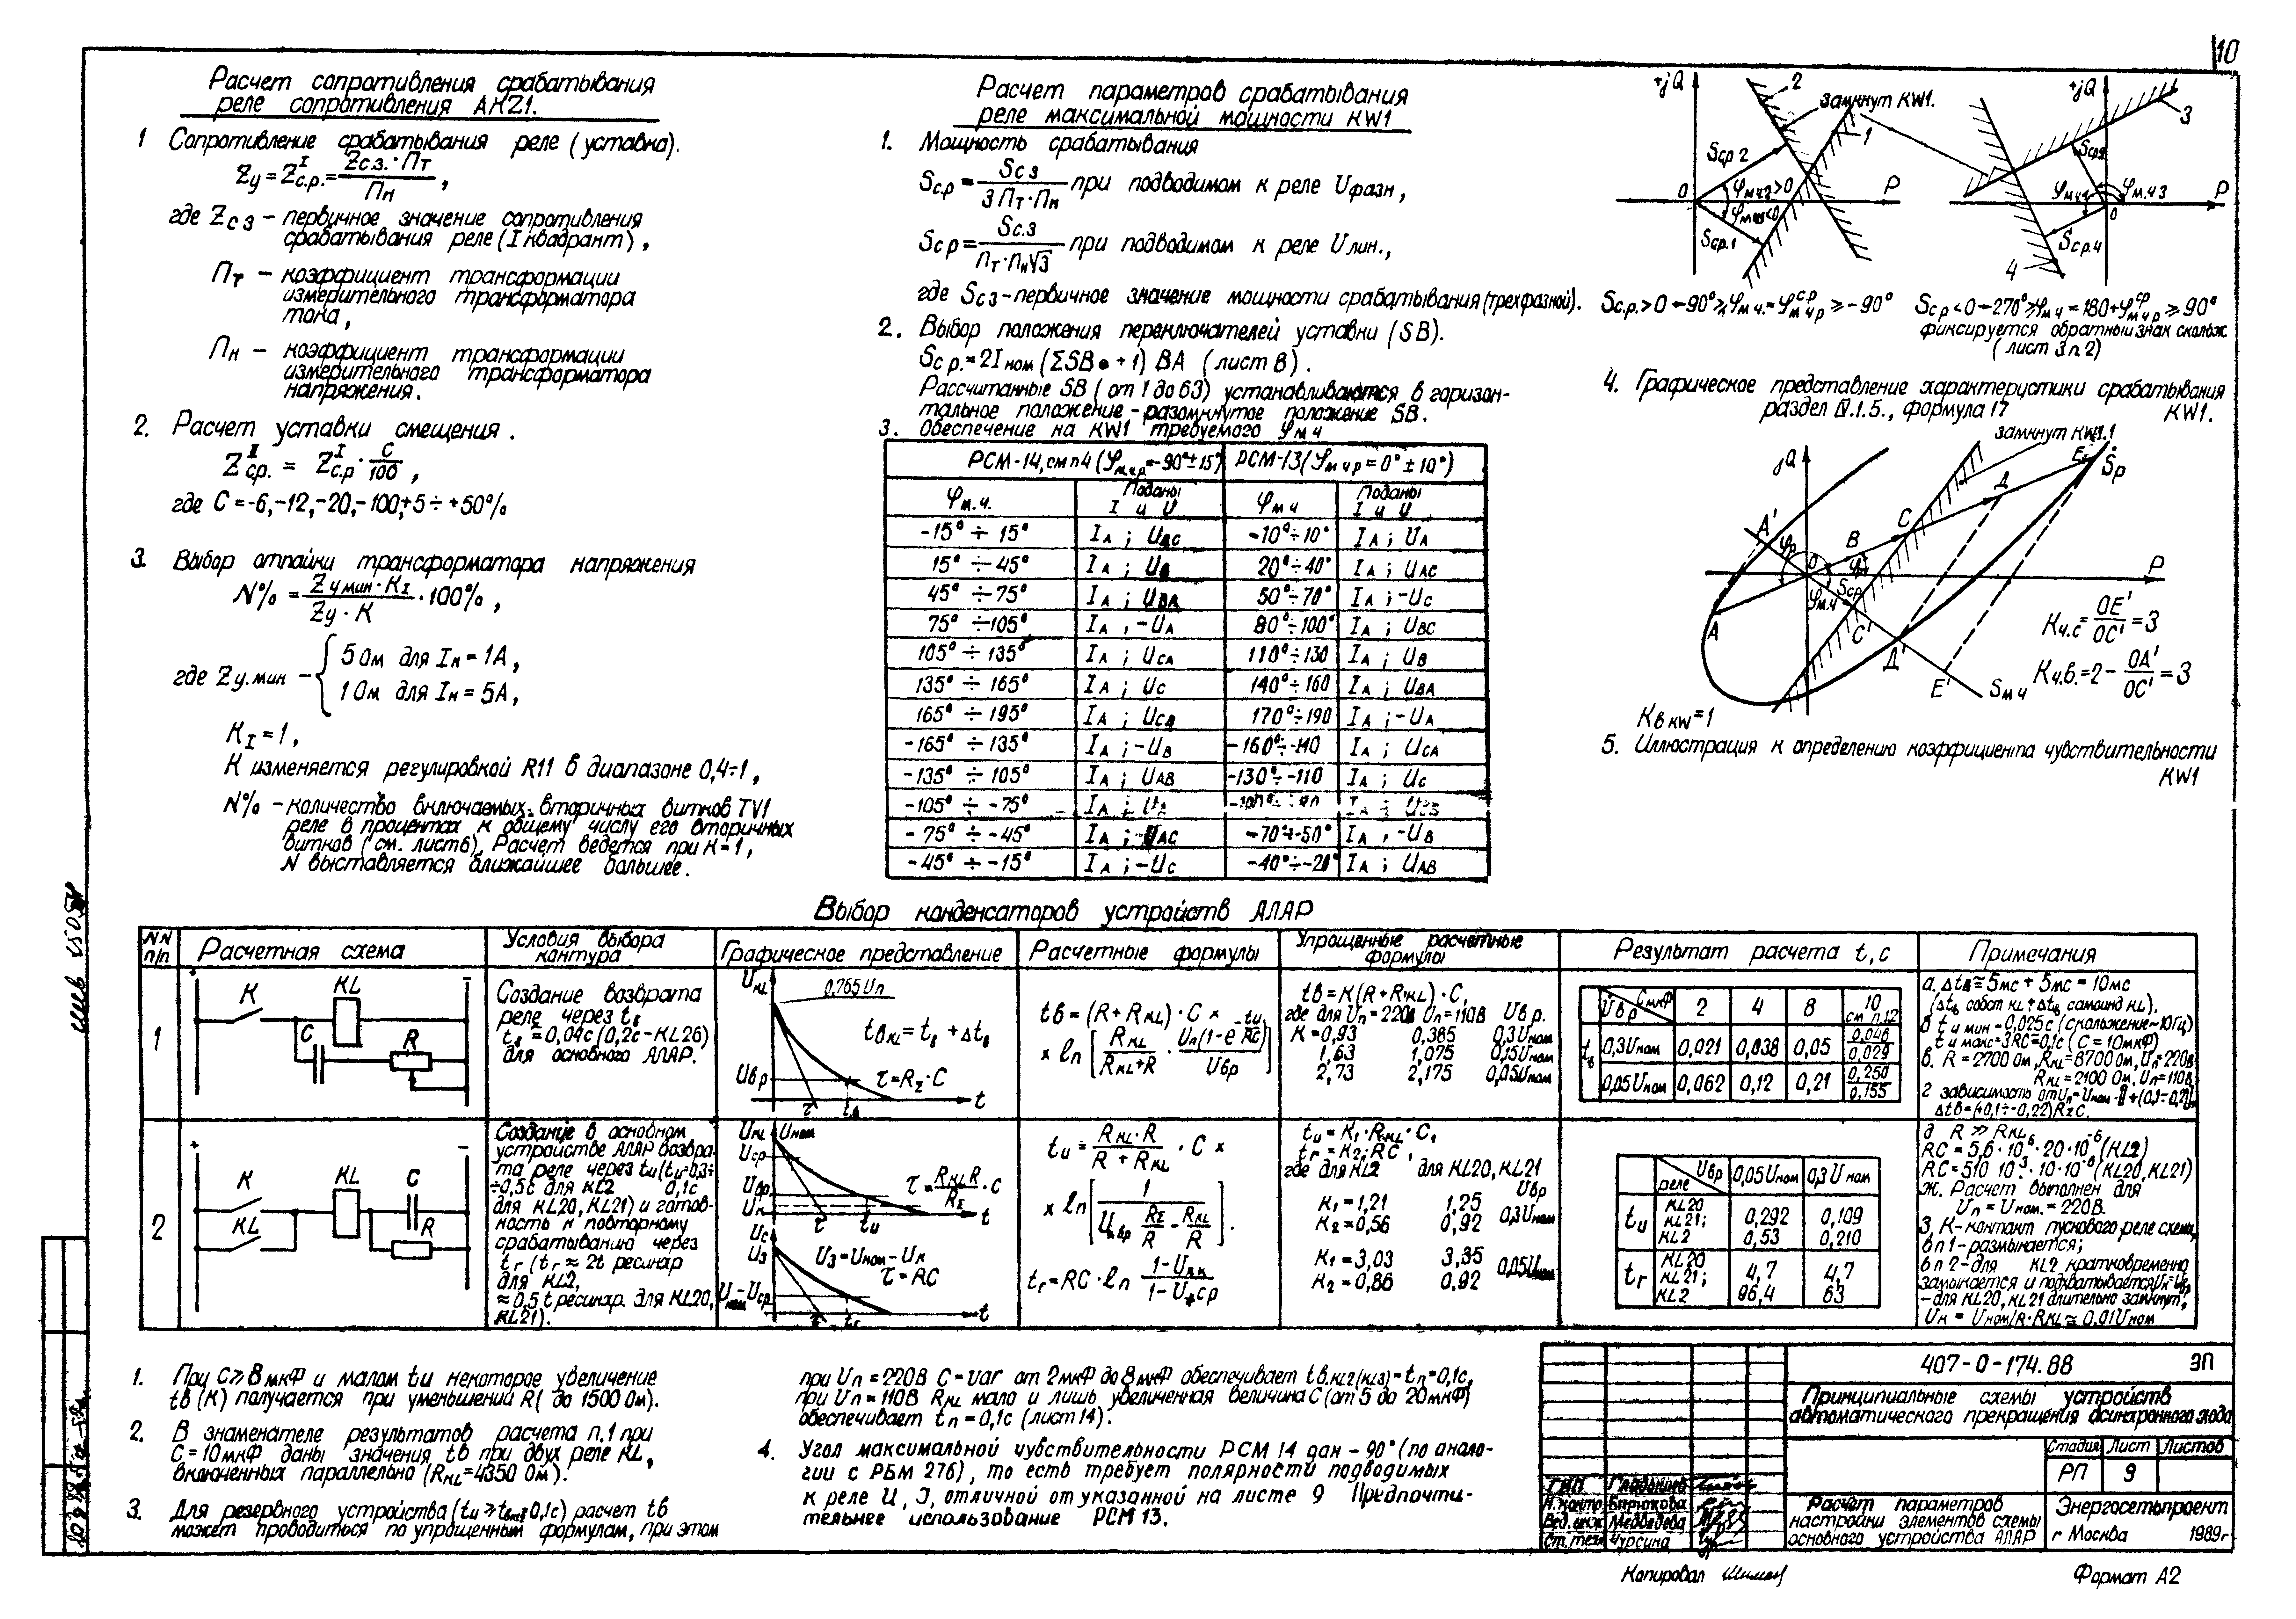 10
Расчет сопротивления срабатывания
реле сопротивления AKZ1.
1 Сопротивление срабатывания реле (уставка).
Zу = Z I с.р. = Zс.з. · Пт / Пн ,
где Zсз – первичное значение сопротивления
срабатывания реле (I квадрант),
Пт – коэффициент трансформации
измерительного трансформатора
тока,
Пн – коэффициент трансформации
измерительного трансформатора
напряжения.
2. Расчет уставки смещения.
Z II ср. = Z I с.р · C/100 ,
где C = -6, -12, -20, -100, +5 ÷ +50%
3. Выбор отпайки трансформатора напряжения
N% = Zу мин · KI / Zу · K · 100%,
где Zу.мин – { 5 Ом для Iн = 1А,
1 Ом для Iн = 5А,
KI = 1,
K изменяется регулировкой R11 в диапазоне 0,4÷1,
N% – количество включаемых вторичных витков TV1
реле в процентах к общему числу его вторичных
витков (см. лист 6). Расчет ведется при K = 1,
N выставляется ближайшее большее.
Расчет параметров срабатывания
реле максимальной мощности KW1
1. Мощность срабатывания
Sс.р = Sсз / 3 Пт · Пн при подводимом к реле Uфазн,
Sср = Sс.з / Пт · Пн√3 при подводимом к реле Uлин.,
где Sсз – первичное значение мощности срабатывания (трехфазной).
2. Выбор положения переключателей уставки (SB).
Sс р. = 2Iном (ΣSB• + 1) ВА (лист 8).
Рассчитанные SB (от 1 до 63) устанавливаются в горизон-
тальное положение – разомкнутое положение SB.
3. Обеспечение на KW1 требуемого φмч
РСМ-14, см п4 (φм.ч р = -90° ± 15°) РСМ-13 (φм ч р = 0° ± 10°)
φм.ч. Поданы I и U φм ч Поданы I и U
-15° ÷ 15° IА ; -10° ÷ 10° IА ; UА
15° ÷ 45° IА ; 20° ÷ 40° IА ; UАС
45° ÷ 75° IА ; UВА 50° ÷ 70° IА ; -UС
75° ÷ 105° IА , -UА 80° ÷ 100° IА ; UВС
105° ÷ 135° IА ; UСА 110° ÷ 130 IА ; UВ
135° ÷ 165° IА ; UС 140° ÷ 160 IА ; UВА
165° ÷ 195° IА ; UСВ 170° ÷ 190 IА ; -UА
-165° ÷ 135° IА ; -UВ -160° ÷ -140 IА ; UСА
-135° ÷ 105° IА ; UАВ -130° ÷ -110 IА ; UС
-105° ÷ -75° IА ; IА ;
-75° ÷ -45° IА ; UАС -70° ÷ -50° IА , -UВ
-45° ÷ -15° IА ; -UС -40° ÷ -20° IА ; UАВ
+jQ 2 замкнут KW1. 1 Sср 2 0 φмч2 > 0 P Sср.1
+jQ 3 φм.ч 3 P 0 Sср.4 4
Sс.р. > 0 – 90° ≥ φм ч. = φ ср м ч р ≥ -90°
Sс р < 0 – 270° ≥ φм ч = 180 + φ ср м ч р ≥ 90°
фиксируется обратный знак скольж
(лист 3 п 2)
4. Графическое представление характеристики срабатывания
раздел IV.1.5., формула 17 KW1.
замкнут KW1.1
jQ E Sр Д C B A' φр 0 P A φм.ч Sср C' Д' E' Sм ч
Kч.с = OE' / OC' = 3
Kч.в. = 2 – OA' / OC' = 3
Kв KW = 1
5. Иллюстрация к определению коэффициента чувствительности
KW1
Выбор конденсаторов устройств АЛАР
NN п/п
Расчетная схема
Условия выбора контура
Графическое представление
Расчетные формулы
Упрощенные расчетные формулы
Результат расчета t, c
Примечания
1
+ –
K KL C R
Создание возврата
реле через tв
tв = 0,04с (0,2с – KL26)
для основного АЛАР.
UKL 0,765 Uп
tвKL = tв + Δtв
Uвр τ = RΣ · C
τ tв t
tв = (R + RKL) · C ×
× ln [ RKL / RKL + R · Uп(1 - e -tи/RC) / Uвр ]
tв = K (R + RKL) · C,
где для Uп = 220В Uп = 110В Uвр.
K = 0,93 0,385 0,3Uном
1,63 1,075 0,15Uном
2,73 2,175 0,05Uном
Uвр C мкФ 2 4 8 10 см п.12
tв 0,3Uном 0,021 0,038 0,05 0,046 / 0,029
0,05Uном 0,062 0,12 0,21 0,250 / 0,155
а. Δtв ≅ 5мс + 5мс = 10мс
(Δtв собст KL + Δtв самоинд KL).
б tи мин = 0,025 с (скольжение ~10Гц)
tи макс = 3RC = 0,1с (C = 10мкФ)
в. R = 2700 Ом, RKL = 8700 Ом, Uп = 220В
RKL = 2100 Ом, Uп = 110В
г зависимость от
Δtв = (+0,1 ÷ -0,22) RΣ C.
2
+ –
K KL KL C R
Создание в основном
устройстве АЛАР возвра-
та реле через tи (tи = 0,3÷
÷0,5с для KL2 0,1с
для KL20, KL21) и готов-
ность к повторному
срабатыванию через
tг (tг ≈ 2t ресинхр
для KL2,
≈ 0,5 t ресинхр. для KL20,
KL21).
UKL Uном
Uср
Uвр
Uк
τ = RKL R / RΣ · C
τ tи t
Uс
Uз Uз = Uном – Uк
τ = RC
Uном – Uср
τ tг t
tи = RKL · R / R + RKL · C ×
× ln [ 1 / U*вр RΣ/R – RKL/R ] .
tг = RC · ln 1 – U*к / 1 – U*ср
tи = K1 · RKL · C,
tг = K2 · RC,
где для KL2 для KL20, KL21
Uвр
K1 = 1,21 1,25
K2 = 0,56 0,92 0,3Uном
K1 = 3,03 3,35
K2 = 0,86 0,92 0,05Uном
реле Uвр 0,05Uном 0,3 Uном
tи KL20 KL21; 0,292 0,109
KL2 0,53 0,210
tг KL20 KL21; 4,7 4,7
KL2 96,4 63
д R ≫ RKL
RC = 5,6 · 10⁶ · 20 · 10⁻⁶ (KL2)
RC = 510 10³ · 10 · 10⁻⁶ (KL20, KL21)
ж. Расчет выполнен для
Uп = Uном. = 220В.
З, K – контакт пускового реле схемы,
в п 1 – размыкается;
в п 2 – для KL2 кратковременно
замыкается и подхватывается
– для KL20, KL21 длительно замкнут,
Uк = Uном/R · RKL ≅ 0,01Uном
1. При C ⩾ 8 мкФ и малом tи некоторое увеличение
tв (K) получается при уменьшении R (до 1500 Ом).
2. В знаменателе результатов расчета п.1 при
C = 10 мкФ даны значения tв при двух реле KL,
включенных параллельно (RKL = 4350 Ом).
3. Для резервного устройства (tи ⩾ 0,1с) расчет tв
может проводиться по упрощенным формулам, при этом
при Uп = 220В C = var от 2мкФ до 8мкФ обеспечивает tв.KL2 (KL3) = tп = 0,1с,
при Uп = 110В RKL мало и лишь увеличенная величина C (от 5 до 20мкФ)
обеспечивает tп = 0,1с (лист 14).
4. Угол максимальной чувствительности РСМ 14 дан – 90° (по анало-
гии с РБМ 276), то есть требует полярности подводимых
к реле U, J, отличной от указанной на листе 9 Предпочти-
тельнее использование РСМ 13.
407-0-174.88 ЭП
Принципиальные схемы устройств
автоматического прекращения асинхронного хода
Стадия Лист Листов
РП 9
ГИП
Н. контр. Бирюкова
Вед. инж. Медведева
Ст. техн Чурсина
Расчет параметров
настройки элементов схемы
основного устройства АЛАР
Энергосетьпроект
г Москва 1989г
Копировал
Формат А2